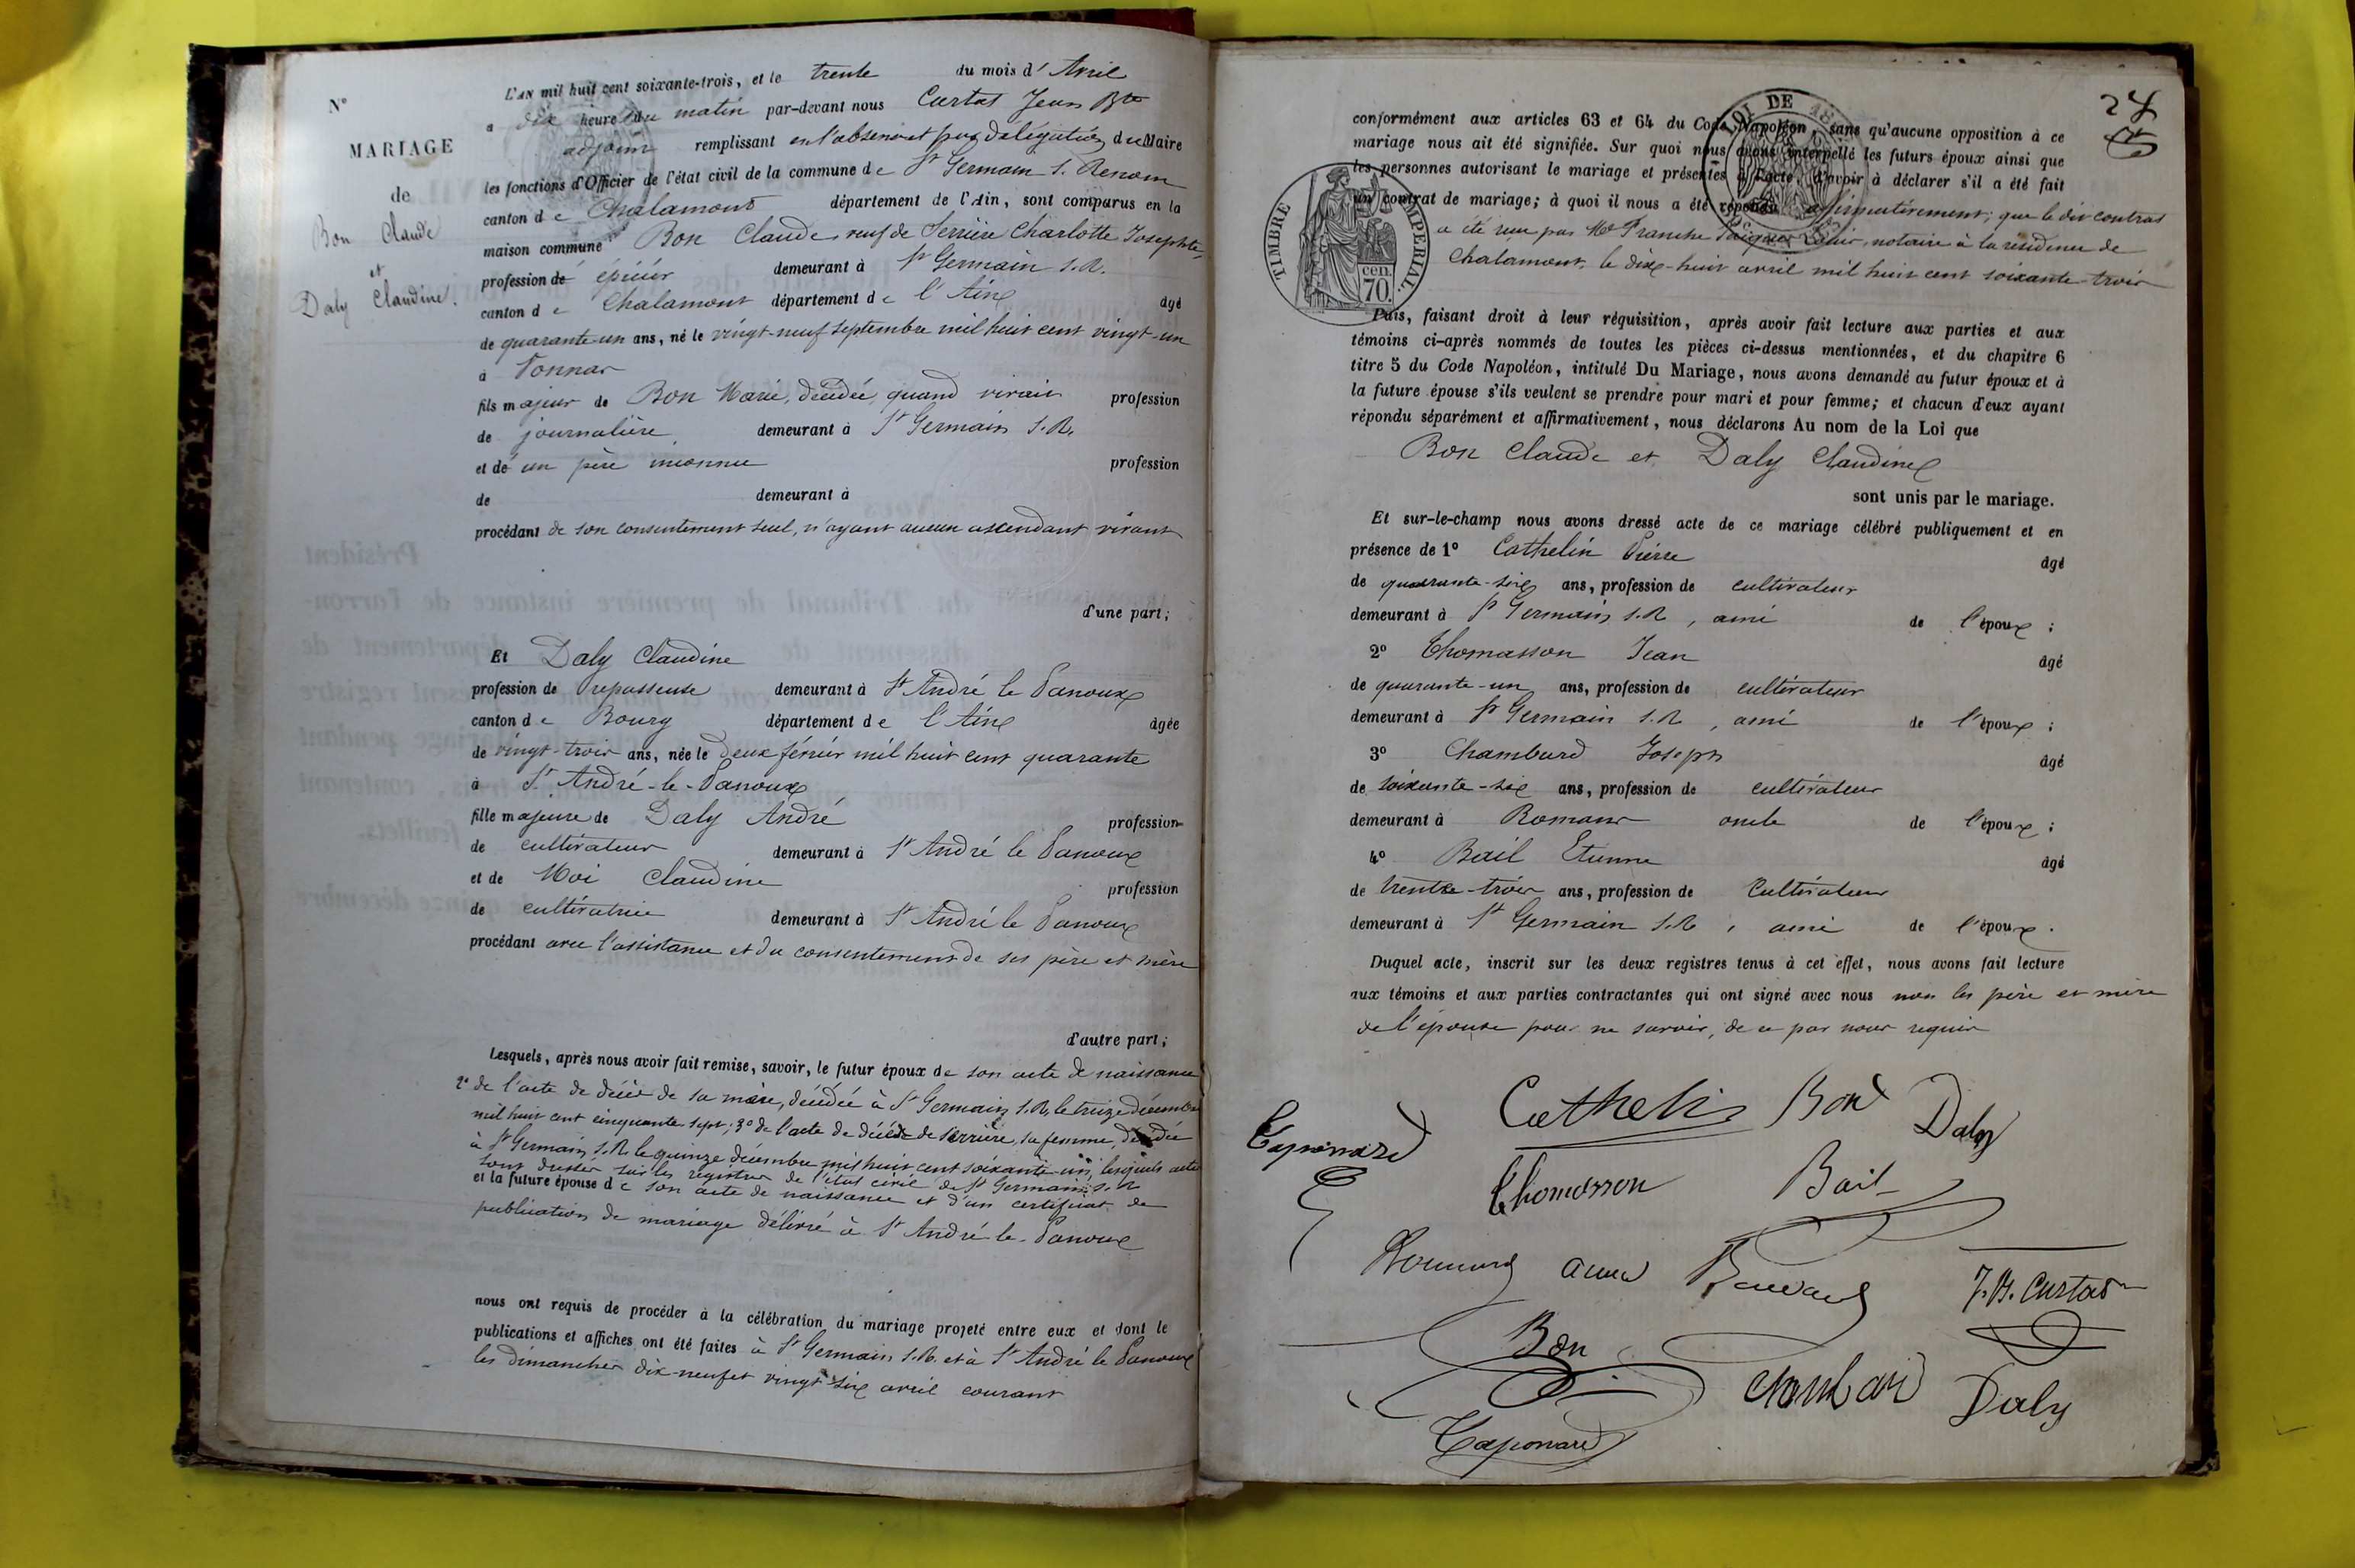 N°
MARIAGE
de
Bon Claude
et
Daly Claudine.
L'AN mil huit cent soixante-trois, et le trente du mois d' Avril
a dix heure du matin par-devant nous Curtas Jean Bte
adjoint remplissant en l'absence et par délégation du Maire
les fonctions d'Officier de l'état civil de la commune de St Germain s. Renom
canton de Chalamont département de l'Ain, sont comparus en la
maison commune Bon Claude, veuf de Serrière Charlotte Josephte,
profession de épicier demeurant à St Germain s. R.
canton de Chalamont département de l'Ain âgé
de quarante-un ans, né le vingt-neuf septembre mil huit cent vingt-un
à Vonnas
fils majeur de Bon Marie, décédée, quand vivait profession
de journalière, demeurant à St Germain s. R.
et de un père inconnu profession
de demeurant à
procédant de son consentement seul, n'ayant aucun ascendant vivant
d'une part;
Et Daly Claudine
profession de repasseuse demeurant à St André le Panoux
canton de Bourg département de l'Ain âgée
de vingt-trois ans, née le deux février mil huit cent quarante
à St André-le-Panoux
fille majeure de Daly André profession
de cultivateur demeurant à St André le Panoux
et de Moi Claudine profession
de cultivatrice demeurant à St André le Panoux
procédant avec l'assistance et du consentement de ses père et mère
d'autre part;
Lesquels, après nous avoir fait remise, savoir, le futur époux de son acte de naissance
2° de l'acte de décès de sa mère, décédée à St Germain s. R. le treize décembre
mil huit cent cinquante sept; 3° de l'acte de décès de Serrière, sa femme, décédée
à St Germain s. R. le quinze décembre mil huit cent soixante-un, lesquels actes
sont dressés sur les registres de l'état civil de St Germain s. R
et la future épouse de son acte de naissance et d'un certificat de
publication de mariage délivré à St André-le-Panoux
nous ont requis de procéder à la célébration du mariage projeté entre eux et dont le
publications et affiches ont été faites à St Germain s. R. et à St André le Panoux
les dimanches dix-neuf et vingt six avril courant
24
conformément aux articles 63 et 64 du Code Napoléon, sans qu'aucune opposition à ce
mariage nous ait été signifiée. Sur quoi nous avons interpellé les futurs époux ainsi que
les personnes autorisant le mariage et présentes à l'acte, d'avoir à déclarer s'il a été fait
un contrat de mariage; à quoi il nous a été répondu affirmativement; que le dit contrat
a été reçu par Me Franche notaire à la résidence de
Chalamont, le dix-huit avril mil huit cent soixante-trois
TIMBRE IMPERIAL.
cen.
70.
Puis, faisant droit à leur réquisition, après avoir fait lecture aux parties et aux
témoins ci-après nommés de toutes les pièces ci-dessus mentionnées, et du chapitre 6
titre 5 du Code Napoléon, intitulé Du Mariage, nous avons demandé au futur époux et à
la future épouse s'ils veulent se prendre pour mari et pour femme; et chacun d'eux ayant
répondu séparément et affirmativement, nous déclarons Au nom de la Loi que
Bon Claude et Daly Claudine
sont unis par le mariage.
Et sur-le-champ nous avons dressé acte de ce mariage célébré publiquement et en
présence de 1° Cathelin Pierre âgé
de quarante-six ans, profession de cultivateur
demeurant à St Germain s. R, ami de l'époux;
2° Thomasson Jean âgé
de quarante-un ans, profession de cultivateur
demeurant à St Germain s. R, ami de l'époux;
3° Chambard Joseph âgé
de soixante-six ans, profession de cultivateur
demeurant à Romans oncle de l'époux;
4° Bail Etienne âgé
de trente-trois ans, profession de Cultivateur
demeurant à St Germain s. R, ami de l'époux.
Duquel acte, inscrit sur les deux registres tenus à cet effet, nous avons fait lecture
aux témoins et aux parties contractantes qui ont signé avec nous non les père et mère
de l'épouse pour ne savoir, de ce par nous requis
Caponard Cathelin Bon Daly
Thomasson Bail
J. B. Curtas
Bon
Chambard Daly
Caponard